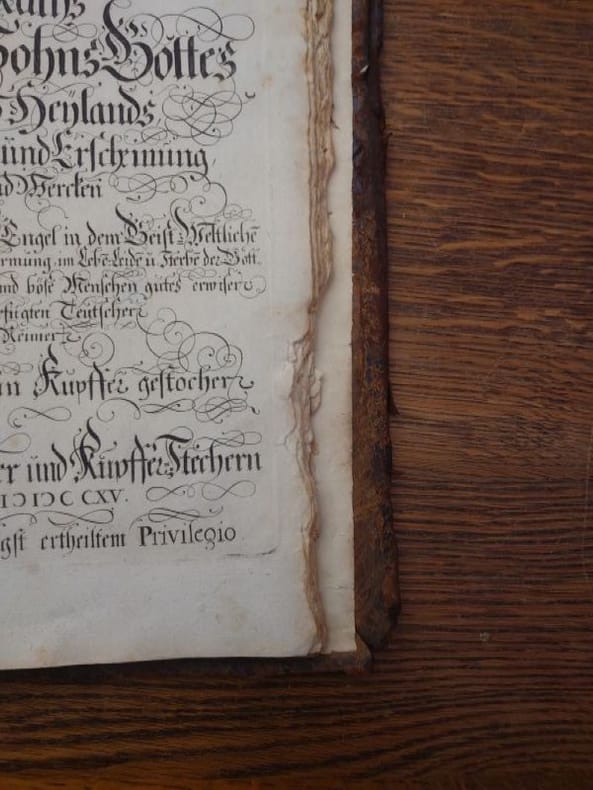 Sohns Gottes
Heylands
und Erscheinung
nd Wercken
Engel in dem Geist Weltliche
ormung im Lebe Leide u Sterbe der Gott.
und böse Menschen gutes erwisen
efügten Teutschen
Reimen
in Kupffer gestochen
er und Kupffer Stechern
IƆ IƆC CXV.
gst ertheiltem Privilegio